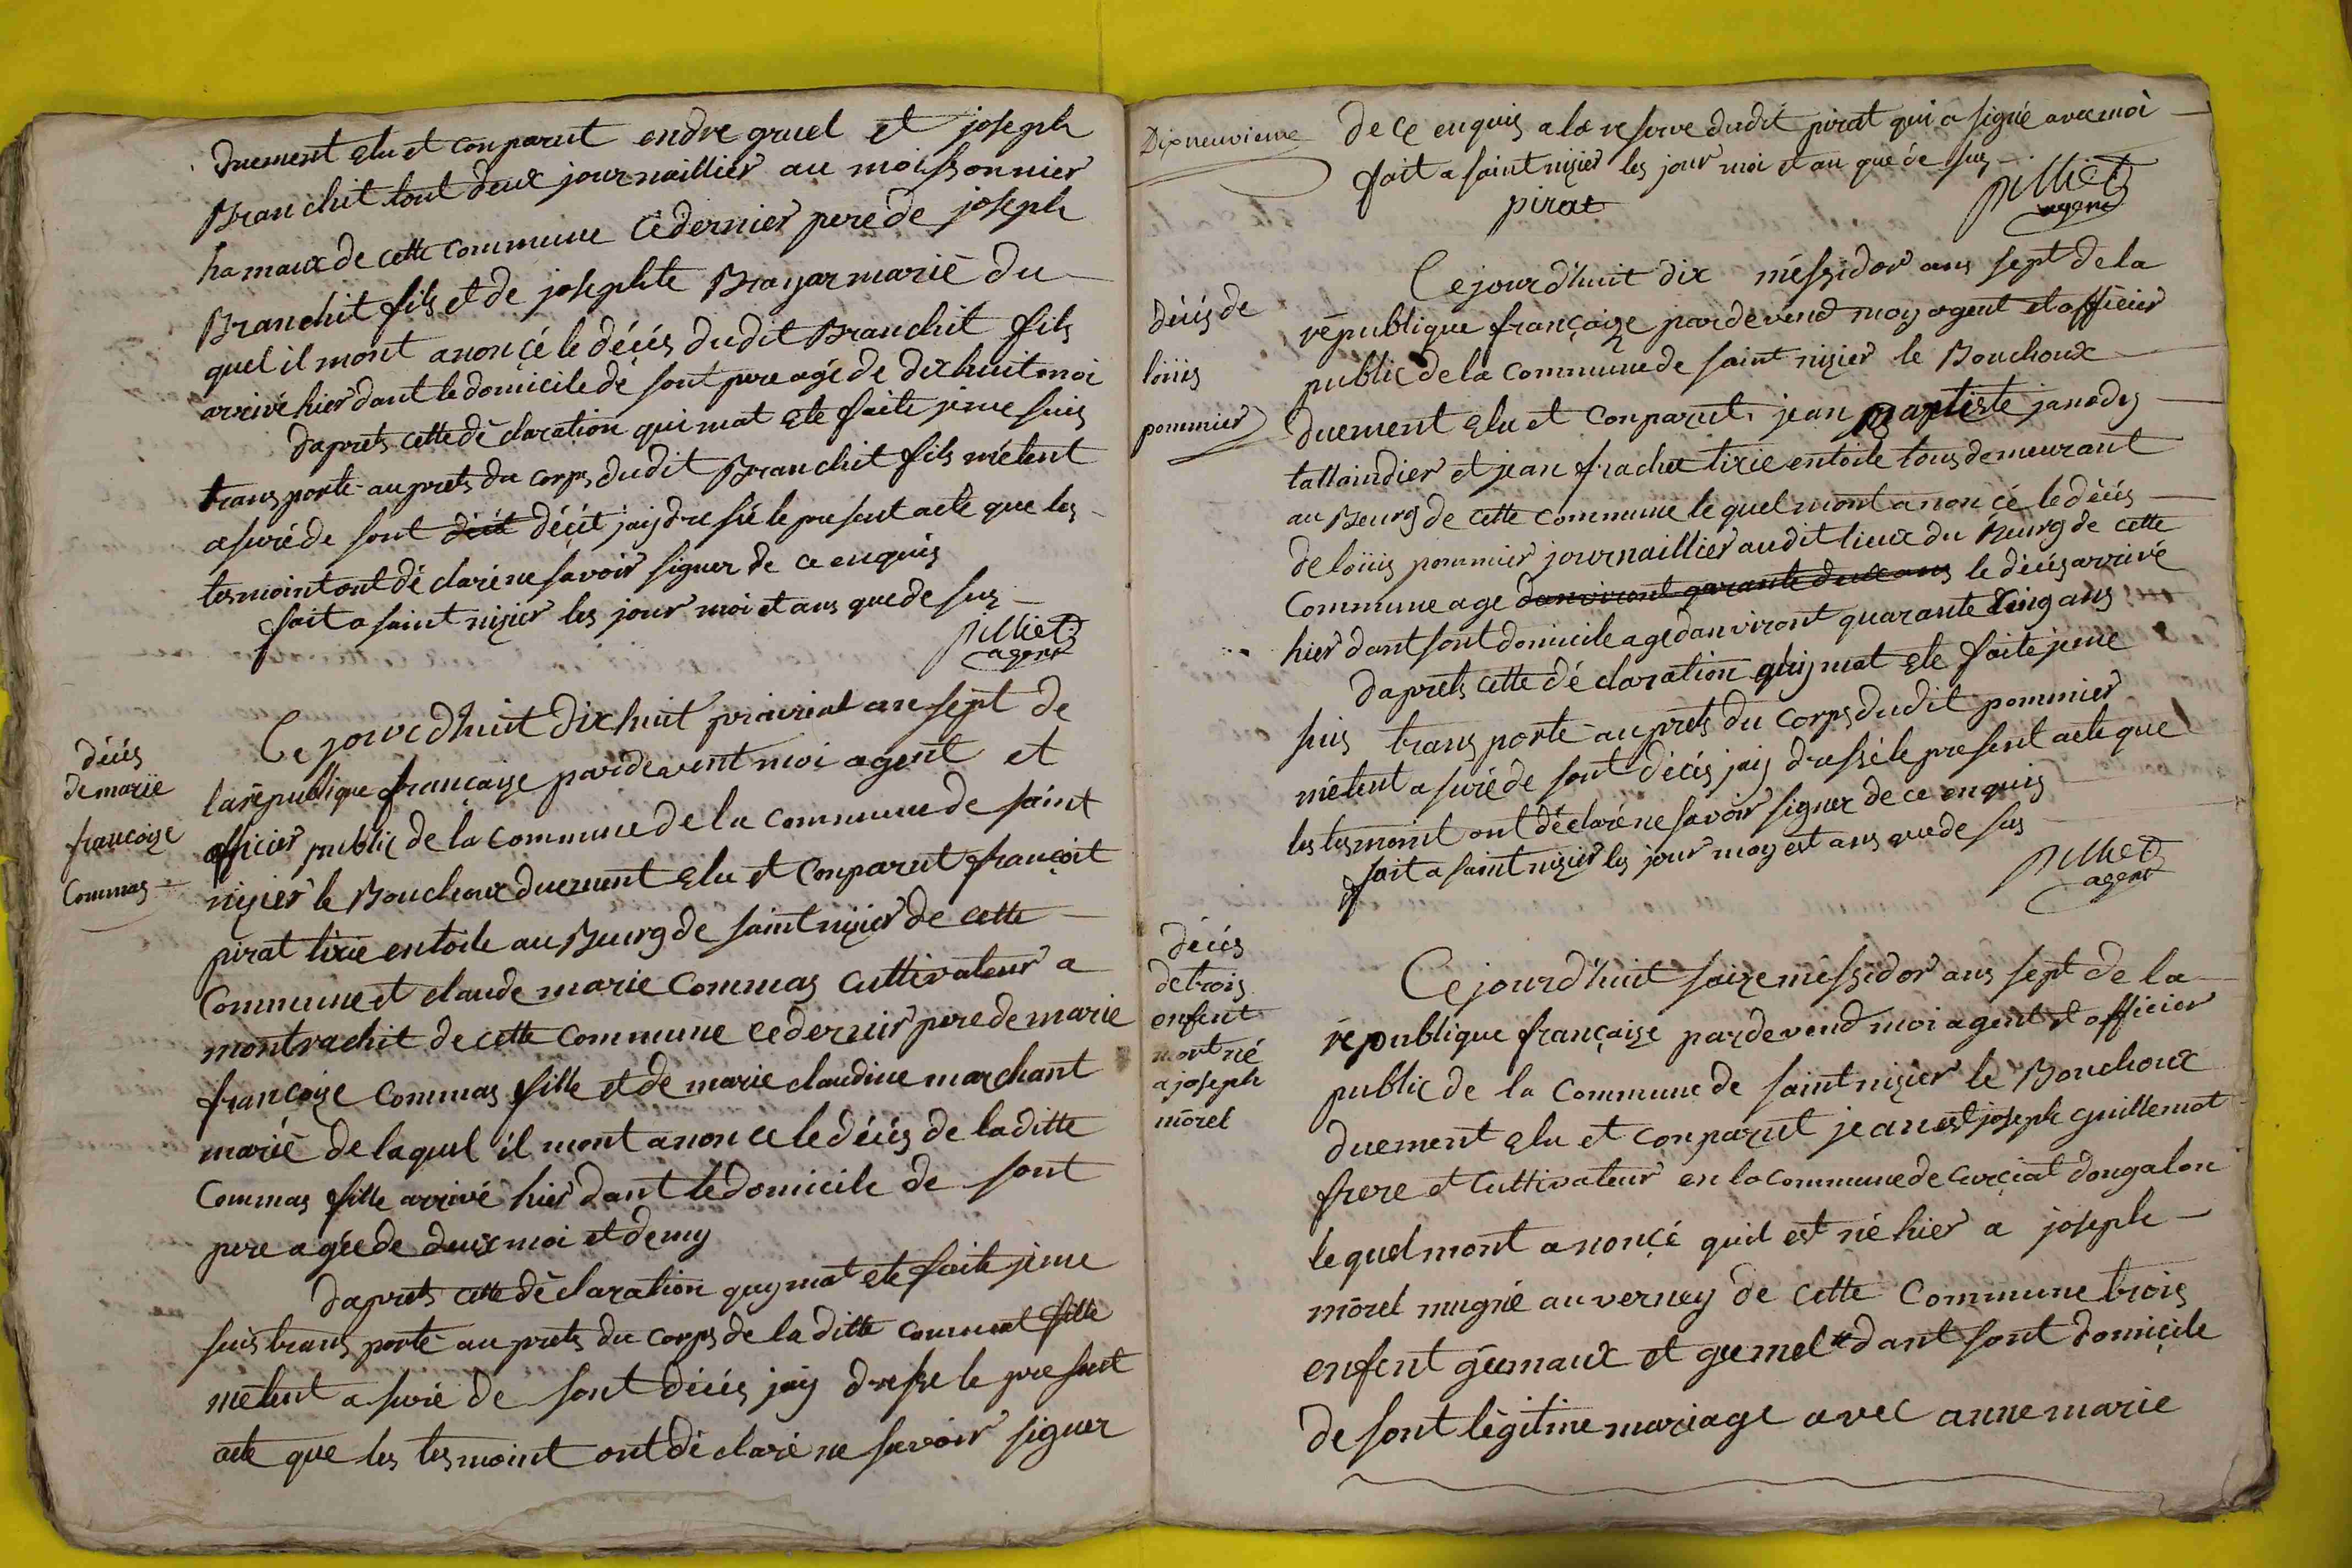 duement elu et conparut endre gruel et joseph
Branchit tout deux journaillier au moissonnier
hamaux de cette commune cedernier pere de joseph
Branchit fils et de josephte Brayar marié du
quel il mont anoncé le décés dudit Branchit fils
arrivé hier dant le domicile de sont pere agé de dix huit moi
daprets cette déclaration qui mat ete faite jeme suis
transporté au prets du corps dudit Branchit fils métent
asuré de sont décit décit jaj dressé le present acte que les
tesmoint ont déclaré ne savoir signer de ce enquis
fait a saint nizier les jour moi et ans que de sus
pilliet
agent
décés
de marie
francoise
Commas
Ce jourdhuit dix huit prairial an sept de
la republique francaise pardevent moi agent et
officier public de la commune de la commune de saint
nizier le Bouchoux duement elu et conparut françoit
pirat tixie entoile au Beurg de saint nizier de cette
Commune et claude marie Commas cultivateur a
montrachit de cette commune cedernier pere de marie
françoise Commas fille et de marie claudine marchant
marié de laquel il mont anonce le décés de laditte
Commas fille arrivé hier dant le domicile de sont
pere agée de deux moi et demy
daprets cette déclaration quy mat ete faite jeme
suis transporté au prets du corps de la ditte fille
métent asuré de sont décés jaij dresse le present
acte que les tesmoint ont déclaré ne savoir signer
Dix neuvieme
de ce enquis a la reserve dudit pirat qui a signé avec moi
fait a saint nizier les jour moi et an que de sus
pirat
pilliet
agent
décés de
loüis
pommier
Ce jourdhuit dix méssidor ans sept de la
république françaize pardevend moy agent et officier
public de la commune de saint nizier le Bouchoux
duement elu et conparut jean Baptiste janodes
tallaindier et jean frachet tixie entoile tous demeurant
au Beurg de cette commune le quel mont anoncé le décés
de loüis pommier journaillier audit lieux du Beurg de cette
Commune age danviront quarante deux ans le décés arrivé
hier dant sont domicile age danviront quarante cinq ans
daprets cette déclaration quij mat ete faite jeme
suis transporté au prets du corps dudit pommier
métent asuré de sont décés jaij dressé le present acte que
les tesmoint ont déclaré ne savoir signer de ce enquis
fait a saint nizier les jour moy est ans que de sus
pilliet
agent
décés
de trois
enfent
mort né
a joseph
mörel
Ce jourd'huit saize méssidor ans sept de la
république française pardevend moi agent et officier
public de la Commune de saint nizier le Bouchoux
duement elu et conparut jean et joseph guillemot
frere et cultivateur en la commune de curciat dongalon
le quel mont anonçé quil est né hier a joseph
mörel mugnié au verney de cette Commune trois
enfent gümaux et gumel dant sont domicile
de sont légitime mariage avec anne marie